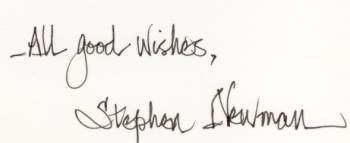 -All good wishes,
Stephen Newman